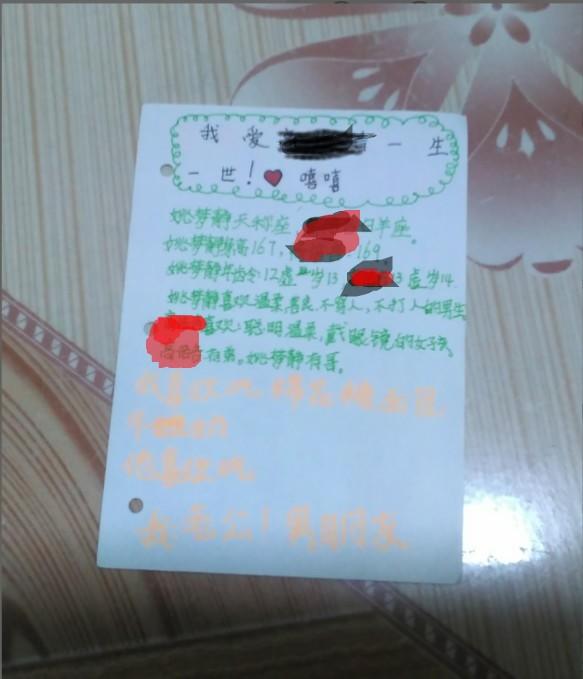 我 爱 一 生
一 世！ 嘻嘻
姚梦静天秤座 羊座。
姚梦静身高167， 169
姚梦静年龄12虚岁13 13虚岁14
姚梦静喜欢温柔善良，不骂人，不打人的男生
喜欢：聪明温柔，戴眼镜的女孩。
有弟。姚梦静有哥。
我喜欢吃棉花糖
他喜欢吃
我老公！男朋友